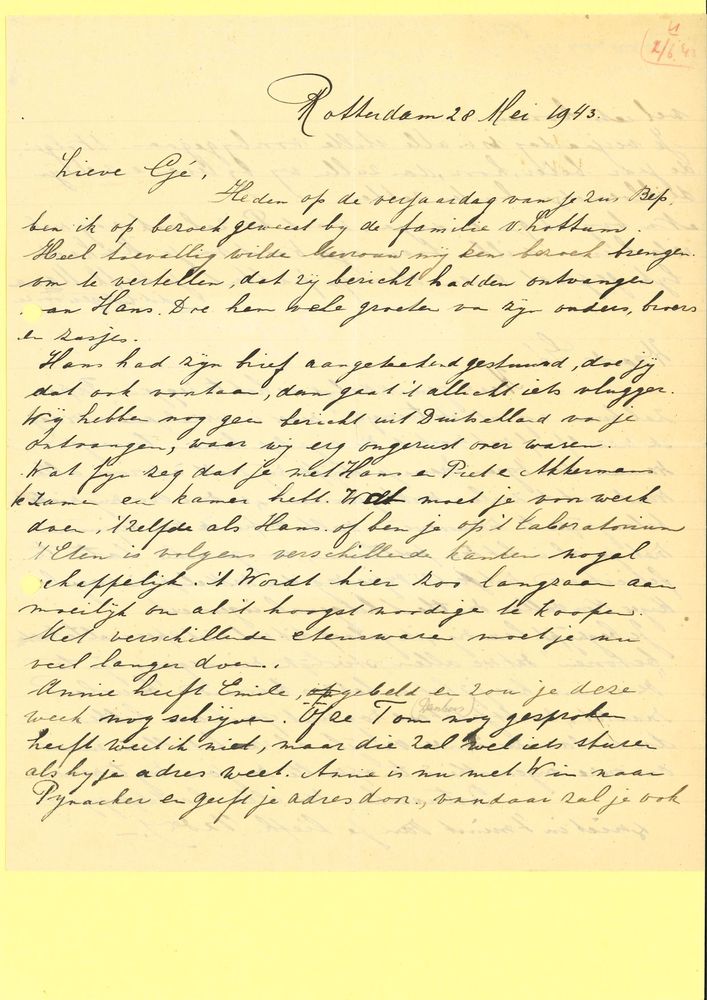 VI
2/6 43
Rotterdam 28 Mei 1943.
Lieve Gé,
Heden op de verjaardag van je zus Bep,
ben ik op bezoek geweest by de familie v. Lottum.
Heel toevallig wilde Mevrouw my een bezoek brengen.
om te vertellen, dat zy bericht hadden ontvangen
van Hans. Doe hem vele groeten van zyn ouders, broers
en zusjes.
Hans had zyn brief aangeteekend gestuurd, doe jy
dat ook voortaan, dan gaat 't allicht iets vlugger.
Wy hebben nog geen bericht uit Duitschland van je
ontvangen, waar wy erg ongerust over waren.
Wat fyn zeg dat je met Hans en Piet Akkermans
te zamen een kamer hebt. Wat moet je voor werk
doen, 't zelfde als Hans. of ben je op 't Laboratorium
't Eten is volgens verschillende kanten nogal
schappelyk. 't Wordt hier zoo langzaam aan
moeilyk om al 't hoogst noodige te koopen.
Met verschillende etenswaren moet je nu
veel langer doen..
Annie heeft Emile, opgebeld en zou je deze
week nog schryven. Of ze Tom nog gesproken
heeft weet ik niet, maar die zal wel iets sturen
als hy je adres weet. Annie is nu met Wim naar
Pynacker en geeft je adres door, vandaar zal je ook